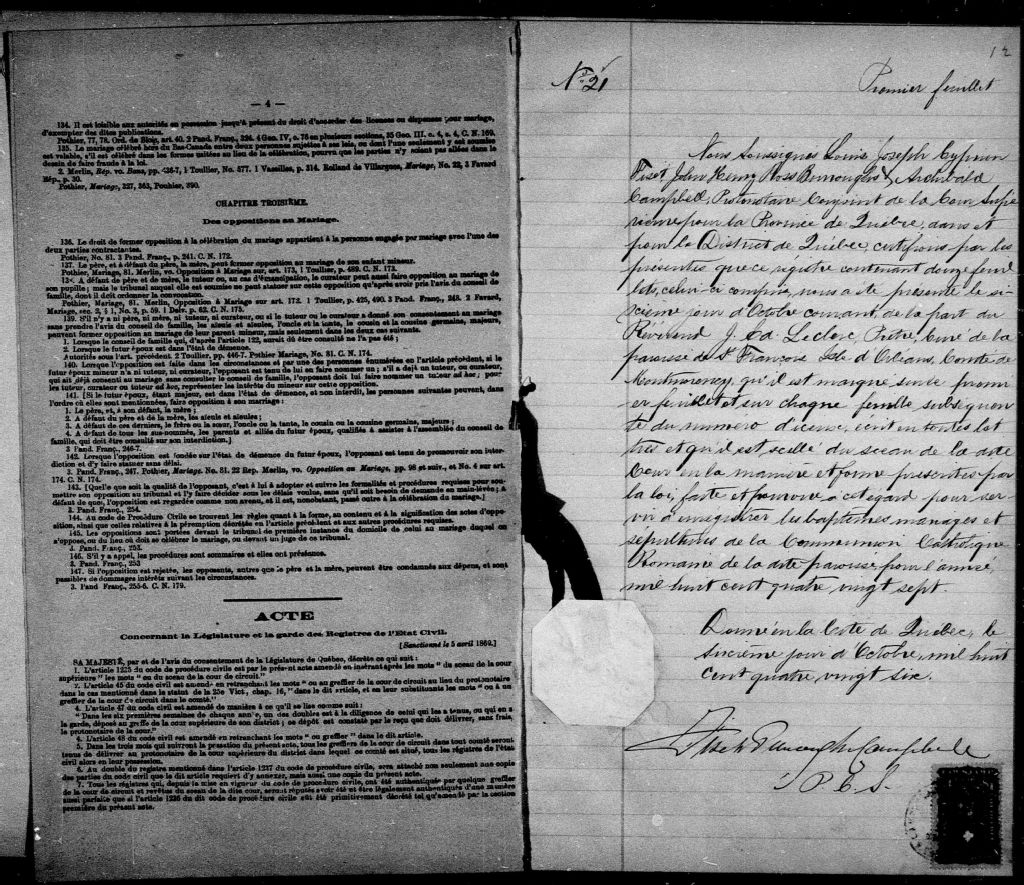 — 4 —
134. Il est loisible aux autorités en possession jusqu'à présent du droit d'accorder des licences ou dispenses pour mariage,
d'exempter des dites publications.
Pothier, 77, 78. Ord. de Blois, art. 40. 2 Pand. Franç., 324. 4 Geo. IV, c. 75 en plusieurs sections, 35 Geo. III, c. 4, s. 4, C. N. 169.
135. Le mariage célébré hors du Bas-Canada entre deux personnes sujettes à ses lois, ou dont l'une seulement y est soumise
est valable, s'il est célébré dans les formes usitées au lieu de la célébration, pourvu que les parties n'y soient pas allées dans le
dessin de faire fraude à la loi.
2. Merlin, Rép. vo. Bans, pp. 436-7, 1 Toullier, No. 577. 1 Vazeilles, p. 314. Rolland de Villargues, Mariage, No. 22, 3 Favard
Rép., p. 30.
Pothier, Mariage, 327, 363, Pouhier, 390.
CHAPITRE TROISIÈME.
Des oppositions au Mariage.
136. Le droit de former opposition à la célébration du mariage appartient à la personne engagée par mariage avec l'une des
deux parties contractantes.
Pothier, No. 81. 3 Pand. Franç., p. 241. C. N. 172.
137. Le père, et à défaut du père, la mère, peut former opposition au mariage de son enfant mineur.
Pothier, Mariage, 81. Merlin, vo. Opposition à Mariage sur, art. 173, 1 Toullier, p. 489. C. N. 173.
138. A défaut de père et de mère, le tuteur, ou, au cas d'émancipation, le curateur peut aussi faire opposition au mariage de
son pupille ; mais le tribunal auquel elle est soumise ne peut statuer sur cette opposition qu'après avoir pris l'avis du conseil de
famille, dont il doit ordonner la convocation.
Pothier, Mariage, 81. Merlin, Opposition à Mariage sur art. 173. 1 Toullier, p. 425, 490. 3 Pand. Franç., 248. 2 Favard,
Mariage, sec. 2, § 1, No. 3, p. 59. 1 Delv. p. 62. C. N. 175.
139. S'il n'y a ni père, ni mère, ni tuteur, ni curateur, ou si le tuteur ou le curateur a donné son consentement au mariage
sans prendre l'avis du conseil de famille, les aïeuls et aïeules, l'oncle et la tante, le cousin et la cousine germains, majeurs,
peuvent former opposition au mariage de leur parent mineur, mais seulement dans les deux cas suivants.
1. Lorsque le conseil de famille qui, d'après l'article 122, aurait dû être consulté ne l'a pas été ;
2. Lorsque le futur époux est dans l'état de démence.
Autorités sous l'art. précédent. 2 Toullier, pp. 446-7. Pothier Mariage, No. 81. C. N. 174.
140. Lorsque l'opposition est faite dans les circonstances et par une des personnes énumérées en l'article précédent, si le
futur époux mineur n'a ni tuteur, ni curateur, l'opposant est tenu de lui en faire nommer un ; s'il a déjà un tuteur, ou curateur,
qui ait déjà consenti au mariage sans consulter le conseil de famille, l'opposant doit lui faire nommer un tuteur ad hoc ; pour
les tuteur, curateur ou tuteur ad hoc, représenter les intérêts du mineur sur cette opposition.
141. [Si le futur époux, étant majeur, est dans l'état de démence, et non interdit, les personnes suivantes peuvent, dans
l'ordre où elles sont mentionnées, faire opposition à son mariage :
1. Le père, et, à son défaut, la mère ;
2. A défaut du père et de la mère, les aïeuls et aïeules ;
3. A défaut de ces derniers, le frère ou la sœur, l'oncle ou la tante, le cousin ou la cousine germains, majeurs ;
4. A défaut de tous les sus-nommés, les parents et alliés du futur époux, qualifiés à assister à l'assemblée du conseil de
famille, qui doit être consulté sur son interdiction.]
3 Pand. Franç., 246-7.
142. Lorsque l'opposition est fondée sur l'état de démence du futur époux, l'opposant est tenu de promouvoir son inter-
diction et d'y faire statuer sans délai.
3. Pand. Franç., 247. Pothier, Mariage, No. 81. 22 Rep. Merlin, vo. Opposition au Mariage, pp. 98 et suiv., et No. 4 sur art.
174. C. N. 174.
143. [Quelle que soit la qualité de l'opposant, c'est à lui à adopter et suivre les formalités et procédures requises pour sou-
mettre son opposition au tribunal et l'y faire décider sous les délais voulus, sans qu'il soit besoin de demande en main-levée ; à
défaut de quoi, l'opposition est regardée comme non avenue, et il est, nonobstant, passé outre à la célébration du mariage.]
3. Pand. Franç., 254.
144. Au code de Procédure Civile se trouvent les règles quant à la forme, au contenu et à la signification des actes d'oppo-
sition, ainsi que celles relatives à la péremption décrétée en l'article précédent et aux autres procédures requises.
145. Les oppositions sont portées devant le tribunal de première instance du domicile de celui au mariage duquel on
s'oppose, ou du lieu où doit se célébrer le mariage, ou devant un juge de ce tribunal.
3. Pand. Franç., 253.
146. S'il y a appel, les procédures sont sommaires et elles ont préséance.
3. Pand. Franç., 253
147. Si l'opposition est rejetée, les opposants, autres que le père et la mère, peuvent être condamnés aux dépens, et sont
passibles de dommages intérêts suivant les circonstances.
3. Pand. Franç., 255-6. C. N. 179.
ACTE
Concernant la Législature et la garde des Registres de l'Etat Civil.
[Sanctionné le 5 avril 1869.]
SA MAJESTÉ, par et de l'avis du consentement de la Législature de Québec, décrète ce qui suit :
1. L'article 1225 du code de procédure civile est par le présent acte amendé en insérant après les mots " du sceau de la cour
supérieure " les mots " ou du sceau de la cour de circuit."
2. L'article 45 du code civil est amendé en retranchant les mots " ou au greffier de la cour de circuit au lieu du protonotaire
dans le cas mentionné dans le statut de la 25e Vict., chap. 16, " dans le dit article, et en leur substituant les mots " ou à un
greffier de la cour de circuit dans le comté."
3. L'article 47 du code civil est amendé de manière à ce qu'il se lise comme suit :
" Dans les six premières semaines de chaque année, un des doubles est à la diligence de celui qui les a tenus, ou qui en a
la garde, déposé au greffe de la cour supérieure de son district ; ce dépôt est constaté par le reçu que doit délivrer, sans frais,
le protonotaire de la cour."
4. L'article 48 du code civil est amendé en retranchant les mots " ou greffier " dans le dit article.
5. Dans les trois mois qui suivront la passation du présent acte, tous les greffiers de la cour de circuit dans tout comté seront
tenus de délivrer au protonotaire de la cour supérieure du district dans lequel ce comté est situé, tous les régistres de l'état
civil alors en leur possession.
6. Au double du registre mentionné dans l'article 1237 du code de procédure civile, sera attaché non seulement une copie
des parties du code civil que le dit article requiert d'y annexer, mais aussi une copie du présent acte.
7. Tous les régistres qui, depuis la mise en vigueur du code de procédure civile, ont été authentiqués par quelque greffier
de la cour de circuit et revêtus du sceau de la dite cour, seront réputés avoir été et être légalement authentiqués d'une manière
aussi parfaite que si l'article 1236 du dit code de procédure civile eût été primitivement décrété tel qu'amendé par la section
première du présent acte.
12
No. 21
Premier feuillet
Nous Soussignés Louis Joseph Cyprien
Fiset John Henry Ross Burroughs & Archibald
Campbell, Protonotaire Conjoint de la Cour Supé
rieure pour la Province de Québec, dans et
pour le District de Québec, certifions par les
présentes que ce registre contenant douze feuil
lets, celui-ci compris, nous a été présenté le si-
xième jour d'Octobre courant, de la part du
Révérend J. Ed. Leclerc, Prêtre, Curé de la
paroisse de St François Isle d'Orléans, Comté de
Montmorency, qu'il est marqué sur le premi
er feuillet et sur chaque feuille subséquen
te du numéro d'icence, écrit en toutes let
tres et qu'il est scellé du sceau de la dite
Cour en la manière et forme présentés par
la loi, faite et pourvue à cet égard pour ser-
vir à enregistrer les baptêmes mariages et
sépultures de la Communion Catholique
Romaine de la dite paroisse pour l'année
mil huit cent quatre vingt sept.
Donné en la Cité de Québec, le
sixième jour d'Octobre, mil huit
cent quatre vingt six.
Fiset Burroughs Campbell
P. C. S.